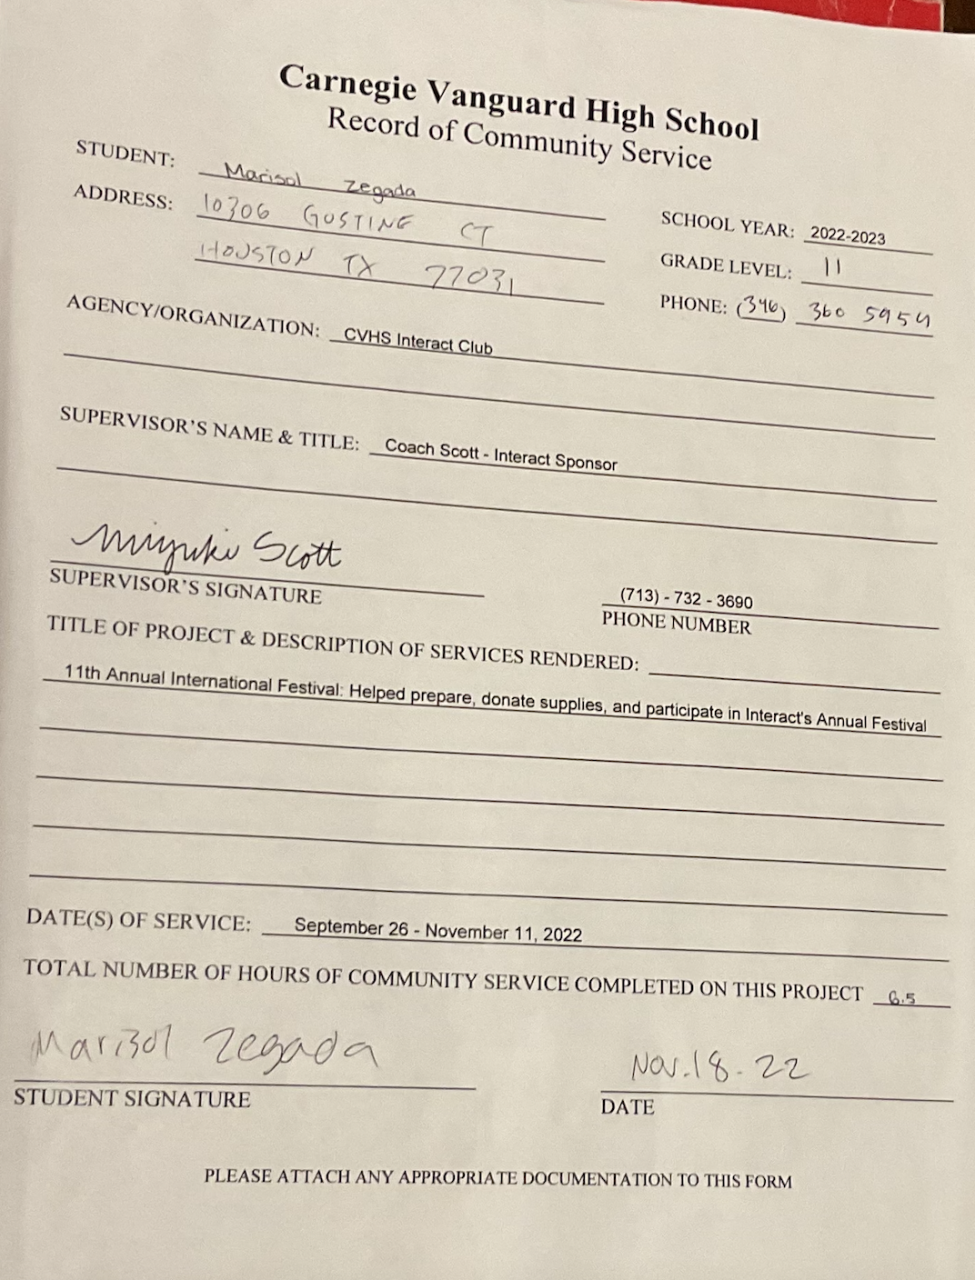 Carnegie Vanguard High School
Record of Community Service
STUDENT: Marisol Zegada
ADDRESS: 10306 GUSTINE CT
HOUSTON TX 77031
SCHOOL YEAR: 2022-2023
GRADE LEVEL: 11
PHONE: (346) 360 5954
AGENCY/ORGANIZATION: CVHS Interact Club
SUPERVISOR'S NAME & TITLE: Coach Scott - Interact Sponsor
Miyuki Scott
SUPERVISOR'S SIGNATURE
(713) - 732 - 3690
PHONE NUMBER
TITLE OF PROJECT & DESCRIPTION OF SERVICES RENDERED:
11th Annual International Festival: Helped prepare, donate supplies, and participate in Interact's Annual Festival
DATE(S) OF SERVICE: September 26 - November 11, 2022
TOTAL NUMBER OF HOURS OF COMMUNITY SERVICE COMPLETED ON THIS PROJECT 6.5
Marisol Zegada
STUDENT SIGNATURE
Nov. 18. 22
DATE
PLEASE ATTACH ANY APPROPRIATE DOCUMENTATION TO THIS FORM